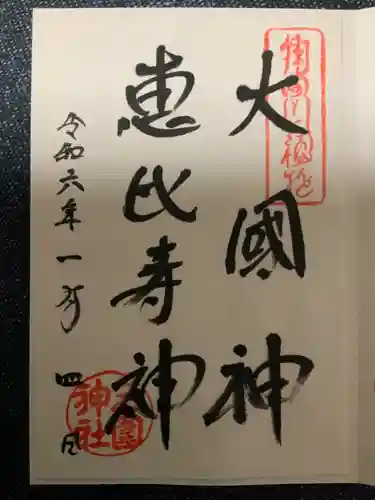 大國神
恵比寿神
令和六年一月四日
神社